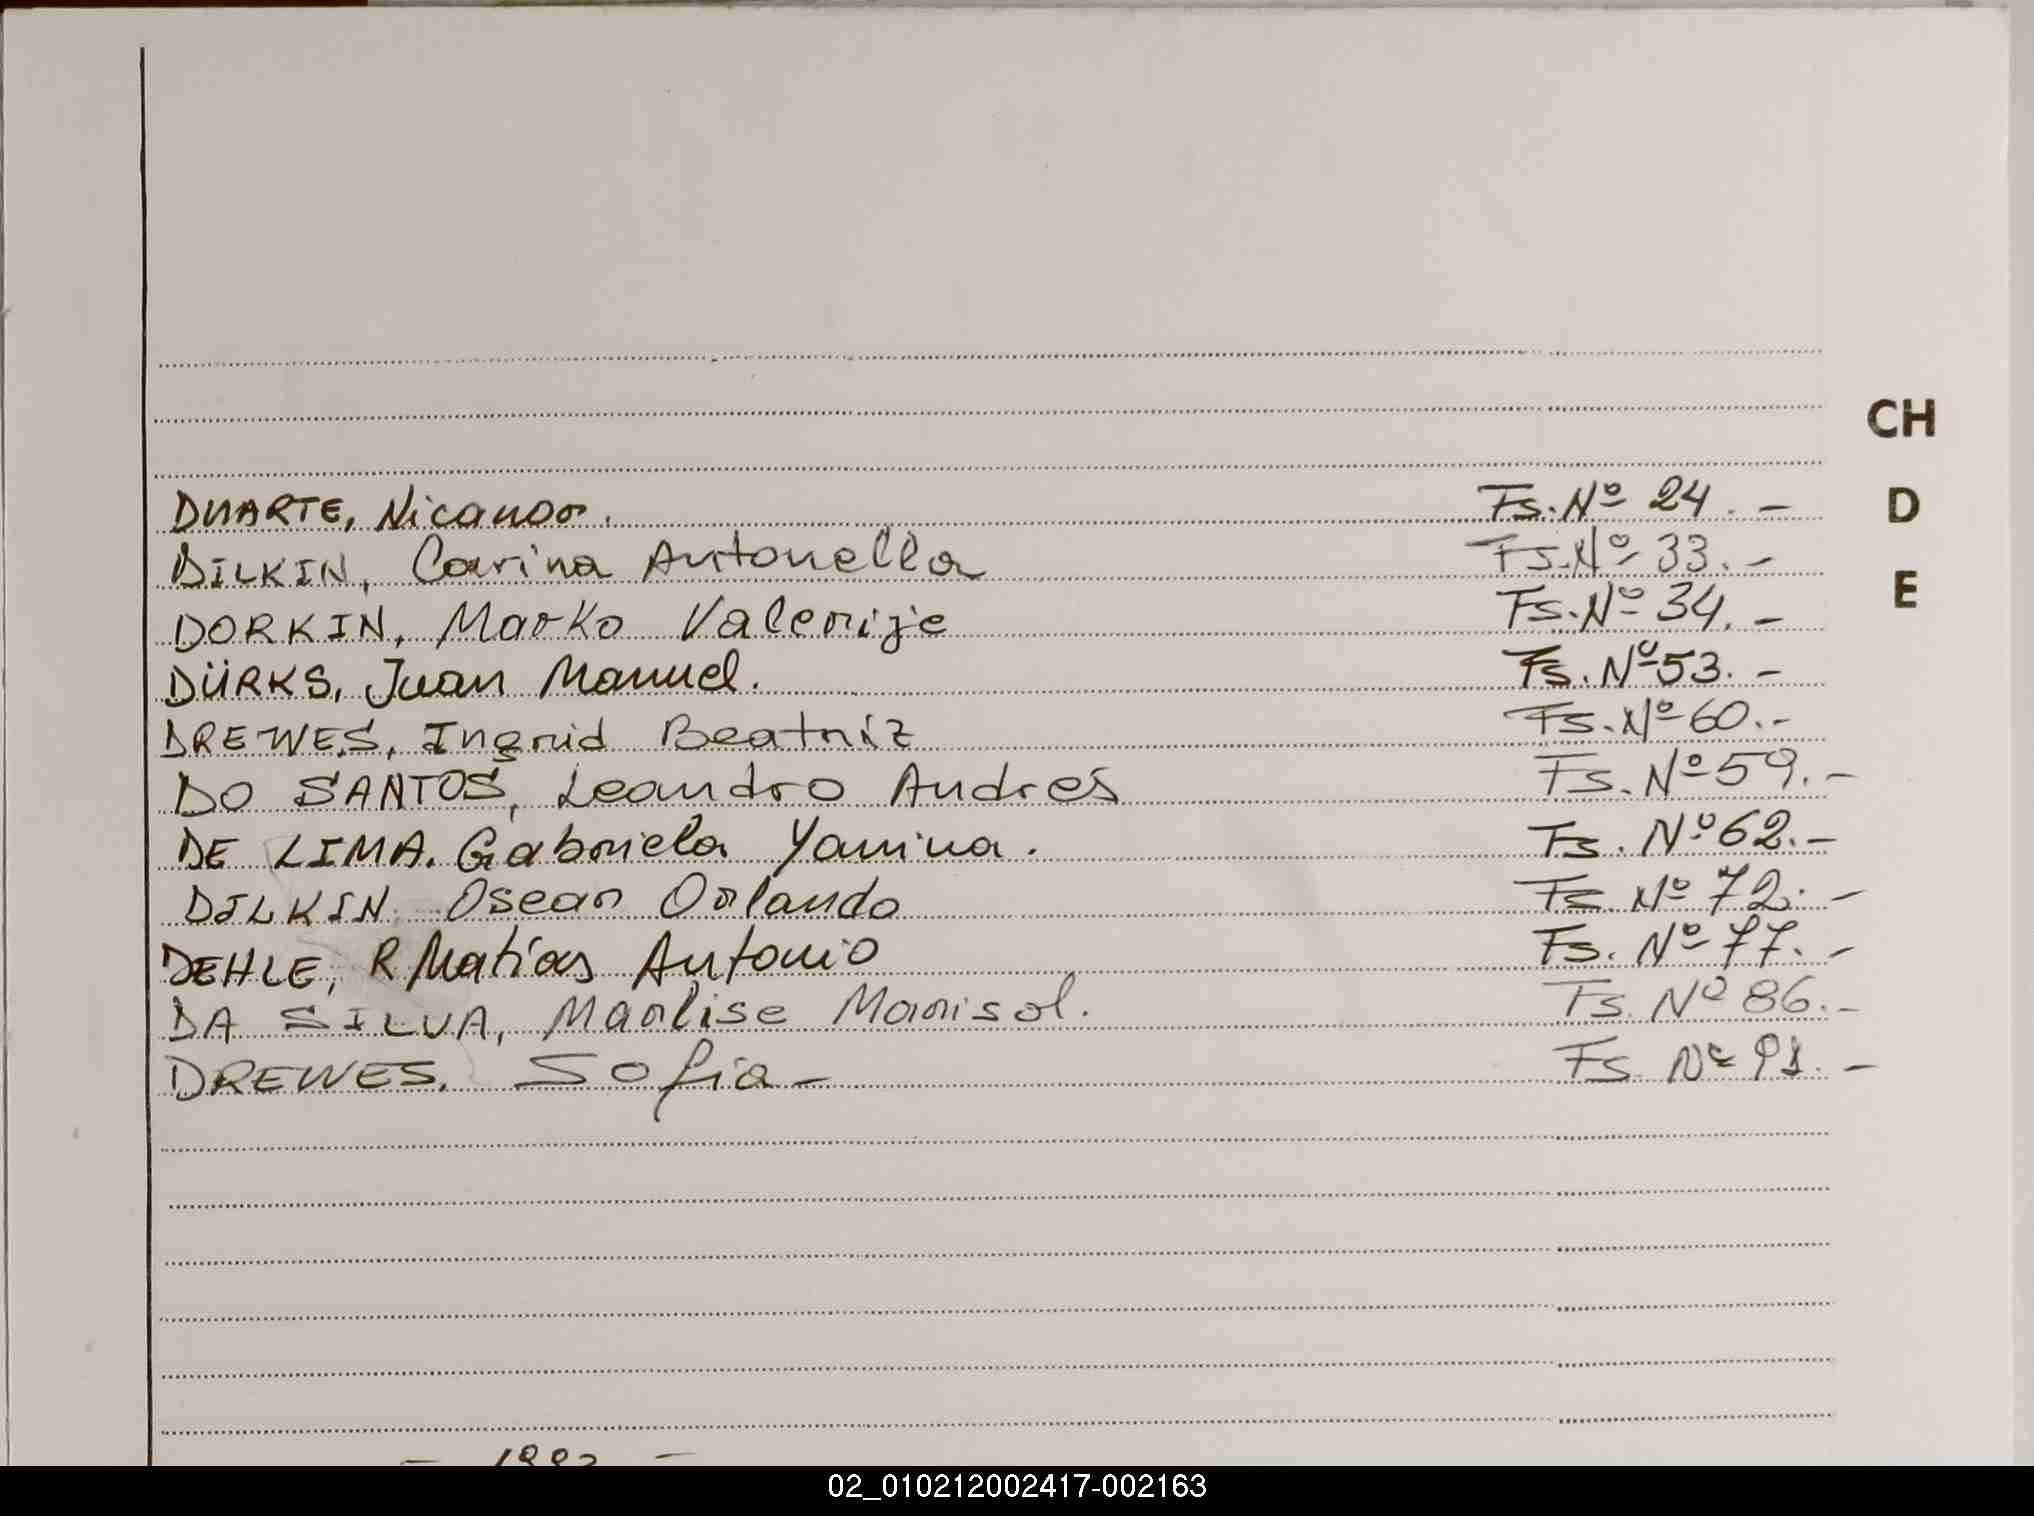 CH
DUARTE, Nicanor. Fs. Nº 24.-
D
DILKIN, Carina Antonella Fs. Nº 33.-
DORKIN, Marko Valerije Fs. Nº 34.-
E
DÜRKS, Juan Manuel. Fs. Nº 53.-
DREWES, Ingrid Beatriz Fs. Nº 60.-
DO SANTOS, Leandro Andrés Fs. Nº 59.-
DE LIMA. Gabriela Yanina. Fs. Nº 62.-
DILKIN Oscar Orlando Fs. Nº 72.-
DEHLE, R Matías Antonio Fs. Nº 77.-
DA SILVA, Marlise Marisol. Fs. Nº 86.-
DREWES. Sofia- Fs Nº 91.-
- 1992 -
02_010212002417-002163